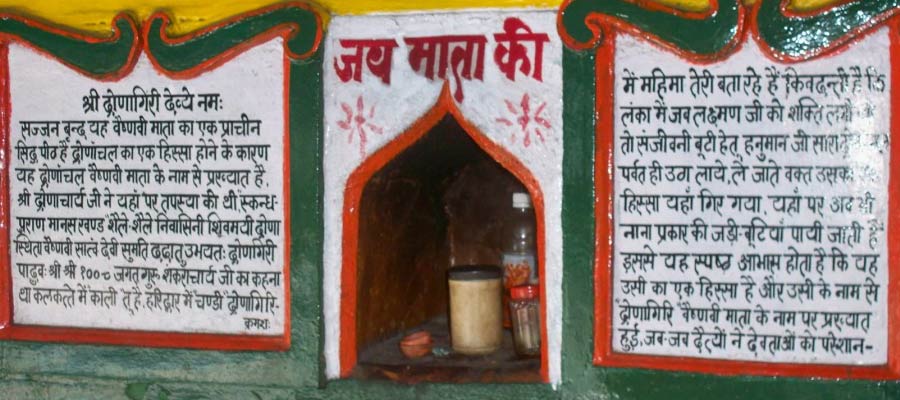 श्री द्रोणागिरी देव्ये नमः
सज्जन बृन्द यह वैष्णवी माता का एक प्राचीन
सिद्ध पीठ है द्रोणांचल का एक हिस्सा होने के कारण
यह द्रोणांचल वैष्णवी माता के नाम से प्रख्यात है,
श्री द्रोणाचार्य जी ने यहां पर तपस्या की थी स्कन्ध-
पुराण मानस खण्ड शैले-शैले निवासिनी शिवमयी द्रोणा
स्थिता वैष्णवी सात्व देवी सुमति ददातु भयतः द्रोणगिरी
पादुवः श्री श्री १००८ जगत् गुरु शंकराचार्य जी का कहना
था कलकत्ते में काली तू है, हरिद्वार में चण्डी द्रोणागिरि-
क्रमशः
जय माता की
में महिमा तेरी बता रहे हैं किंवदन्ती है कि
लंका में जब लक्ष्मण जी को शक्ति लगी
तो संजीवनी बूटी हेतु हनुमान जी सारा
पर्वत ही उठा लाये, ले जाते वक्त उसका
हिस्सा यहाँ गिर गया यहाँ पर अब भी
नाना प्रकार की जड़ी-बूटियां पायी जाती हैं
इससे यह स्पष्ठ आभास होता है कि यह
उसी का एक हिस्सा है और उसी के नाम से
द्रोणागिरी वैष्णवी माता के नाम पर प्रख्यात
हुई, जब-जब दैत्यों ने देवताओं को परेशान-